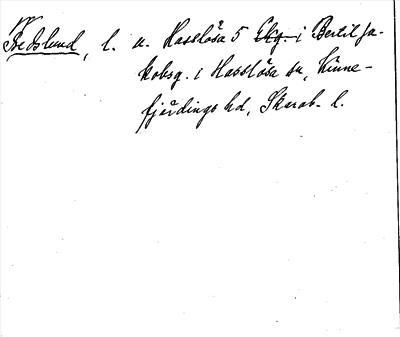 Fredslund, l. u. Hasslösa 5 Skg. i Bertil Ja-
kobsg. i Hasslösa sn, Kinne-
fjärdings hd, Skarab. l.